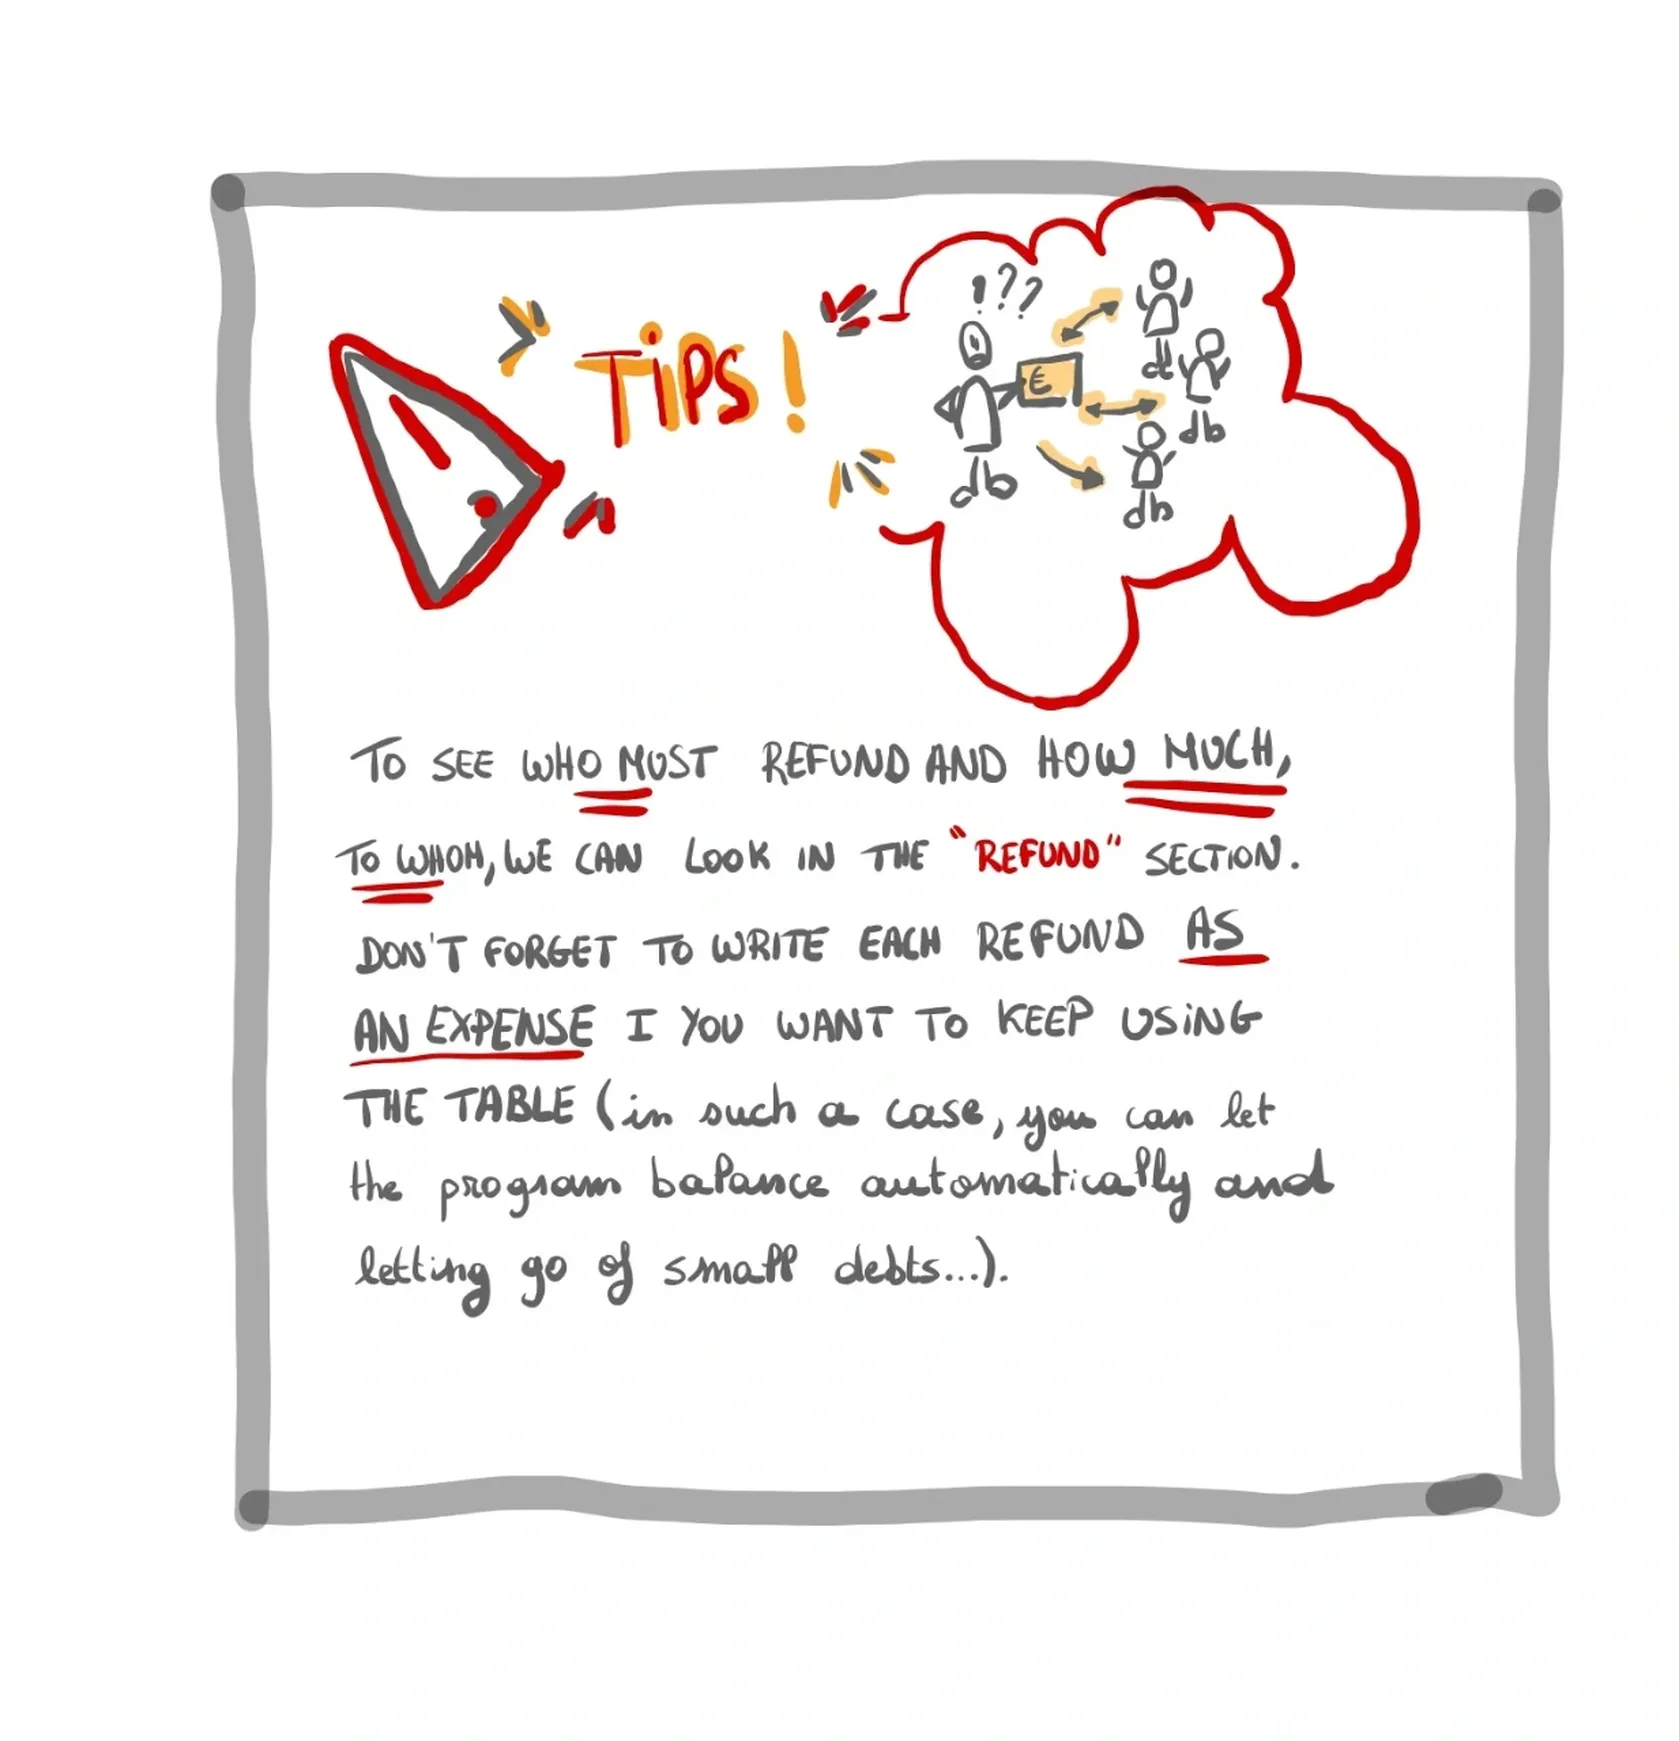 TiPS !
!??
€
TO SEE WHO MUST REFUND AND HOW MUCH,
TO WHOM, WE CAN LOOK IN THE "REFUND" SECTION.
DON'T FORGET TO WRITE EACH REFUND AS
AN EXPENSE I YOU WANT TO KEEP USING
THE TABLE (in such a case, you can let
the program balance automatically and
letting go of small debts...).